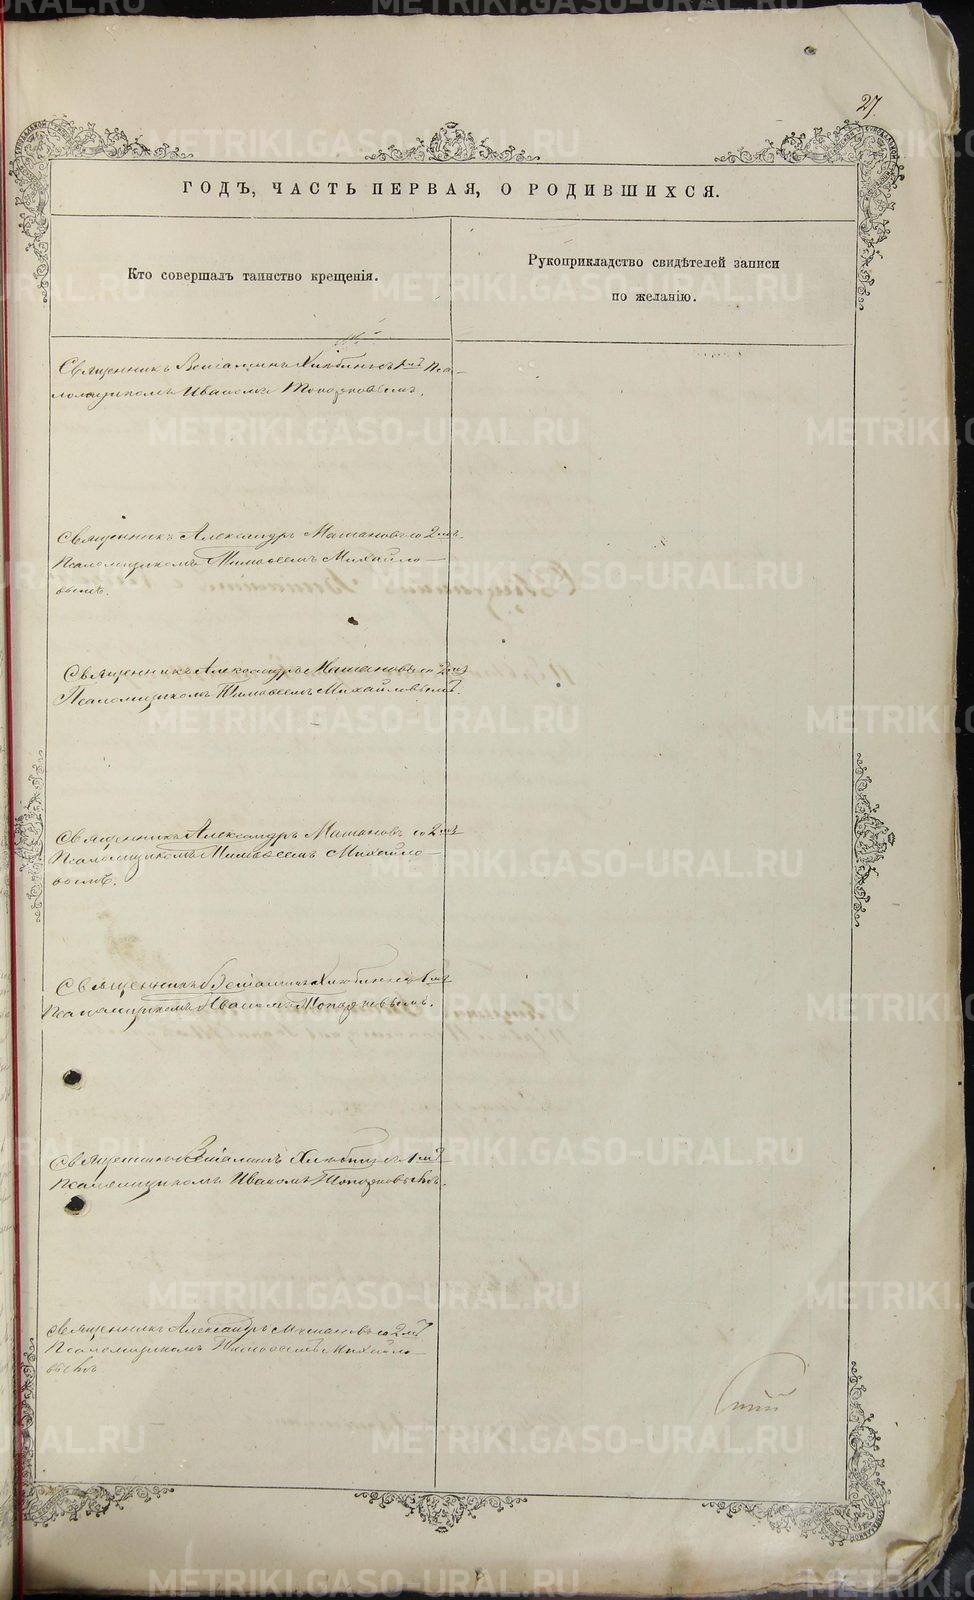 27
ГОДЪ, ЧАСТЬ ПЕРВАЯ, О РОДИВШИХСЯ.
Кто совершалъ таинство крещенія.
Рукоприкладство свидѣтелей записи
по желанію.
Священникъ Веніаминъ 1мъ Пса-
ломщикомъ Иваномъ Топорковымъ.
Священникъ Александръ Машановъ со 2мъ
Псаломщикомъ Тимоѳеемъ Михайло-
вымъ.
Священникъ Александръ Машановъ со 2мъ
Псаломщикомъ Тимоѳеемъ Михайловымъ.
Священникъ Александръ Машановъ со 2мъ
Псаломщикомъ Тимоѳеемъ Михайло-
вымъ.
Священникъ Веніаминъ 1мъ
Псаломщикомъ Иваномъ Топорковымъ.
Священникъ Веніаминъ 1мъ
Псаломщикомъ Иваномъ Топорковымъ.
Священникъ Александръ Машановъ со 2мъ
Псаломщикомъ Тимоѳеемъ Михайло-
вымъ
METRIKI.GASO-URAL.RU